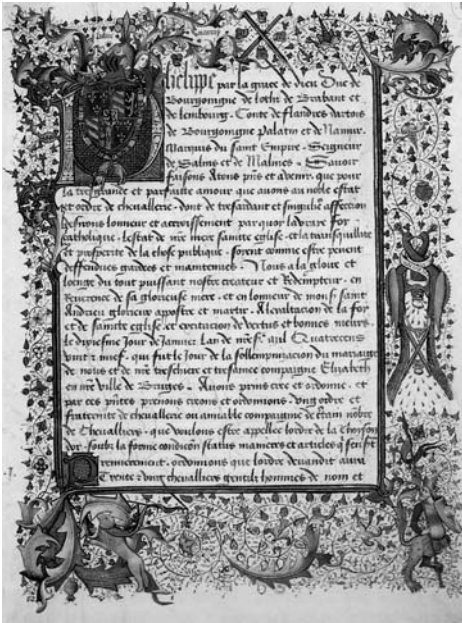 Phelippe par la grace de dieu Duc de
Bourgoingne de lothr de Brabant et
de lembourg . Conte de flandres dartois
de Bourgoingne palatin et de Namur .
Marquis du saint Empire . Seigneur
de Salins et de Malines . Savoir
faisons Atous pns et advenir que pour
la tresgrande et parfaicte amour que avons au noble estat
et ordre de chevallerie . dont de tresardant et singuliere affection
desirons lonneur et accroissement par quoy la vraye foy
catholique . lestat de nre mere saincte eglise . et la transquillite
et prosperite de la chose publique . soyent comme estre peuent
deffendues gardees et maintenues . Nous a la gloire et
loenge du tout puissant nostre createur et Redempteur . en
Reverence de sa glorieuse mere . et en lonneur de monsr saint
Andrieu glorieux appostre et martir . Alexaltacion de la foy
et de saincte eglise . et excitacion de vertus et bonnes meurs .
le dixiesme Jour de Janvier Lan de nre sr mil Quatrecens
vint et neuf . qui fut le Jour de la sollempnisacion du mariaige
de nous et de nre treschiere et tresamee compaigne Elizabeth
en nre ville de Bruges . Avons prins cree et ordonne . et
par ces pntes prenons creons et ordonnons . Ung ordre et
fraternite de chevallerie ou amiable compaignie de
de Chevalliers . que voulons estre appellee lordre de la thoison
dor . soubz la forme condicion statuz manieres et articles qui senst
Premierement . ordonnons que lordre devandit aura
Trente et ung chevalliers gentilz hommes de nom et